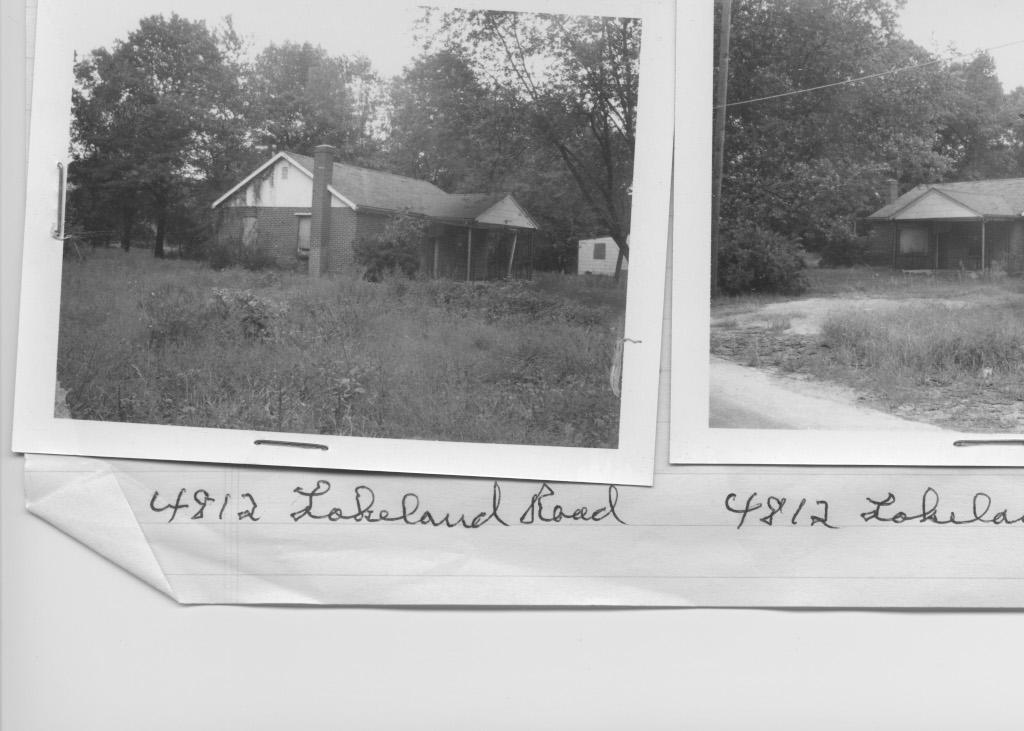 4812 Lakeland Road
4812 Lakela